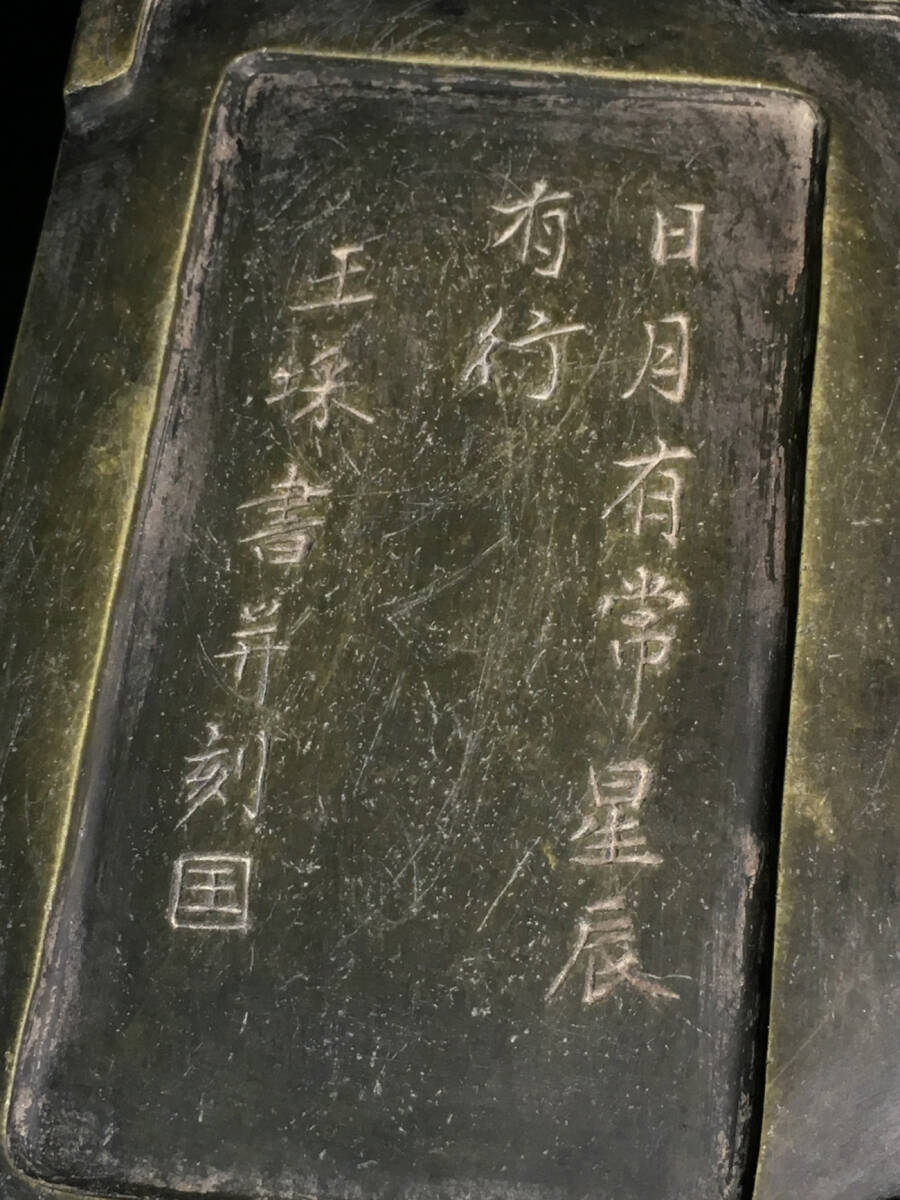 日月有常星辰
有行
王埰書并刻
王